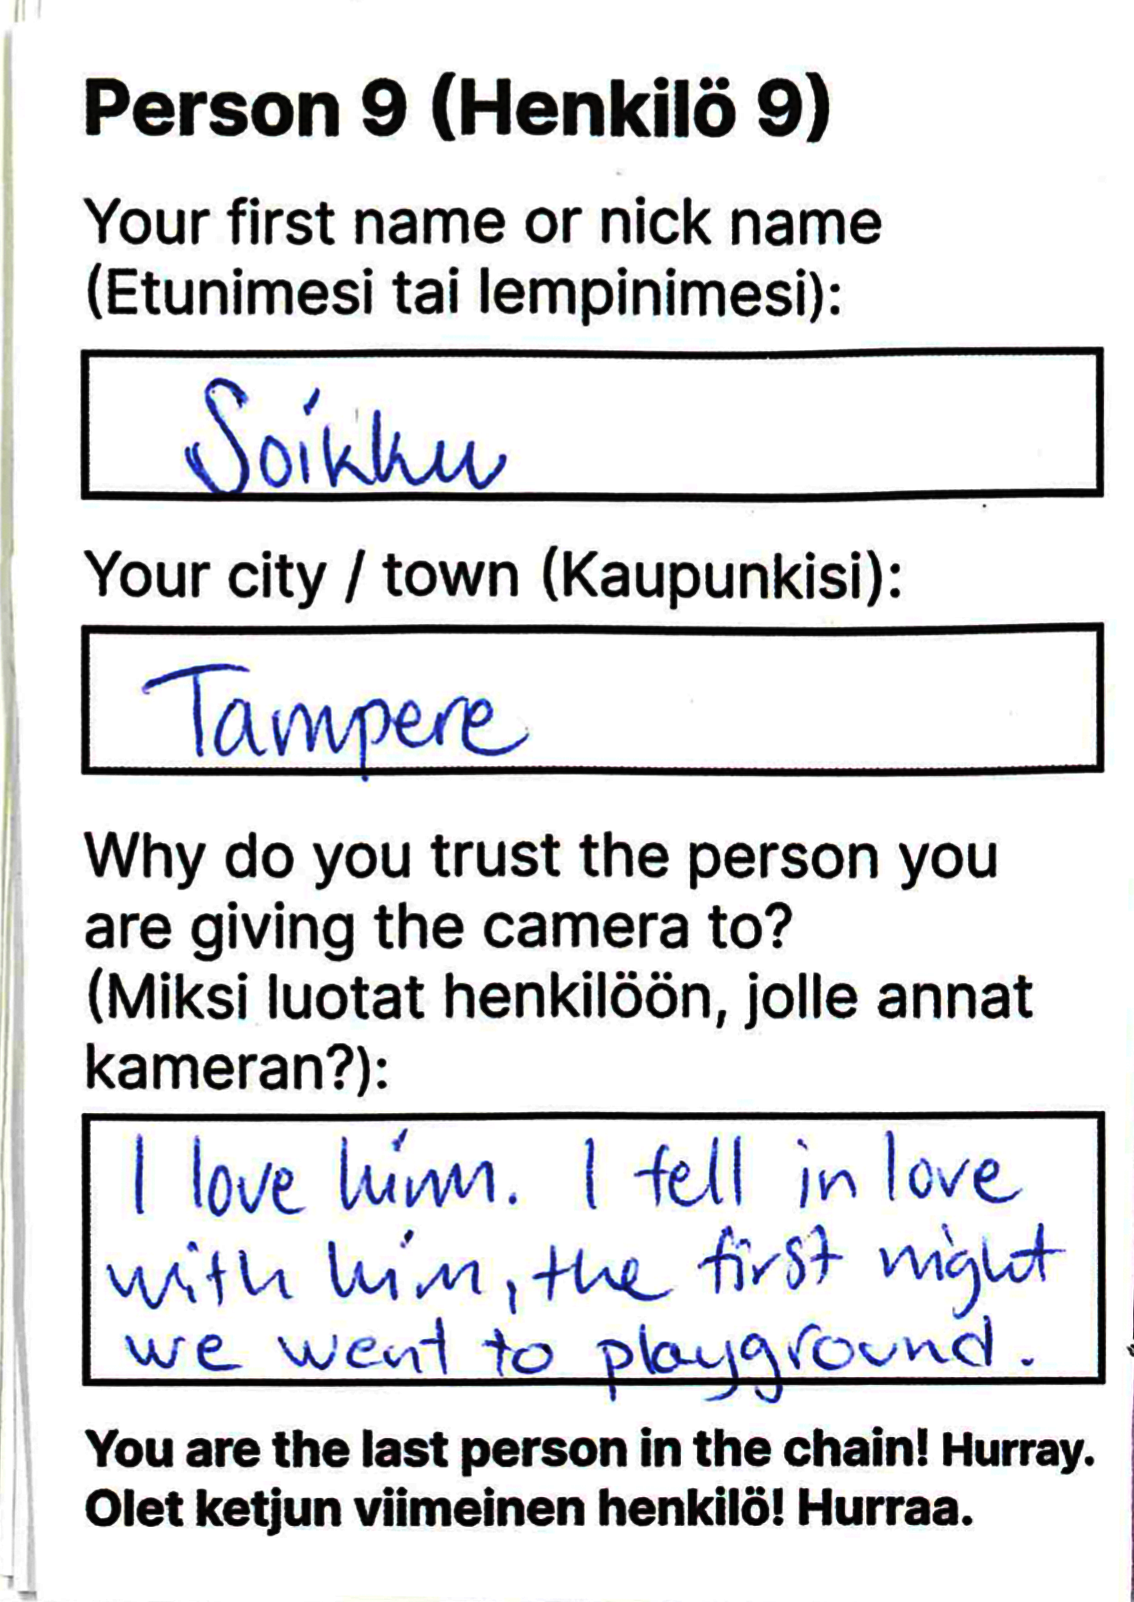 Person 9 (Henkilö 9)
Your first name or nick name
(Etunimesi tai lempinimesi):
Soikku
Your city / town (Kaupunkisi):
Tampere
Why do you trust the person you
are giving the camera to?
(Miksi luotat henkilöön, jolle annat
kameran?):
I love him. I fell in love
with him, the first night
we went to playground.
You are the last person in the chain! Hurray.
Olet ketjun viimeinen henkilö! Hurraa.